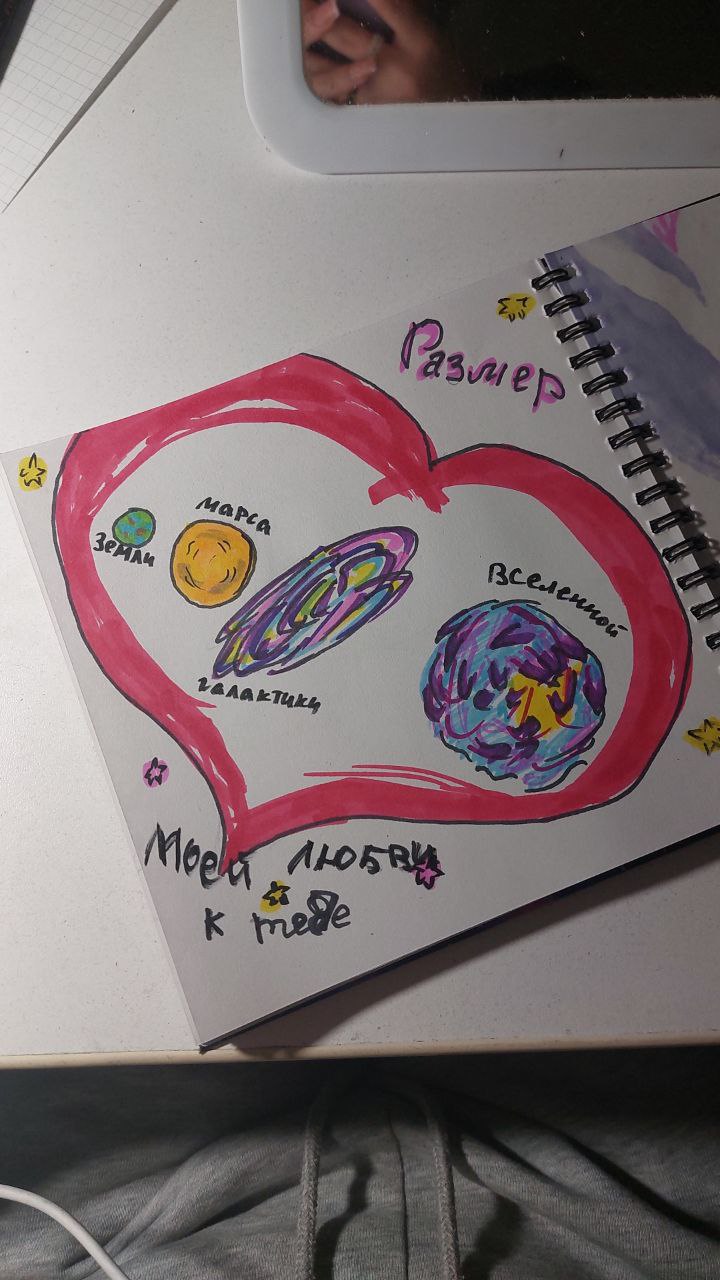 Размер
Земли
марса
галактики
Вселенной
Моей любви
к тебе